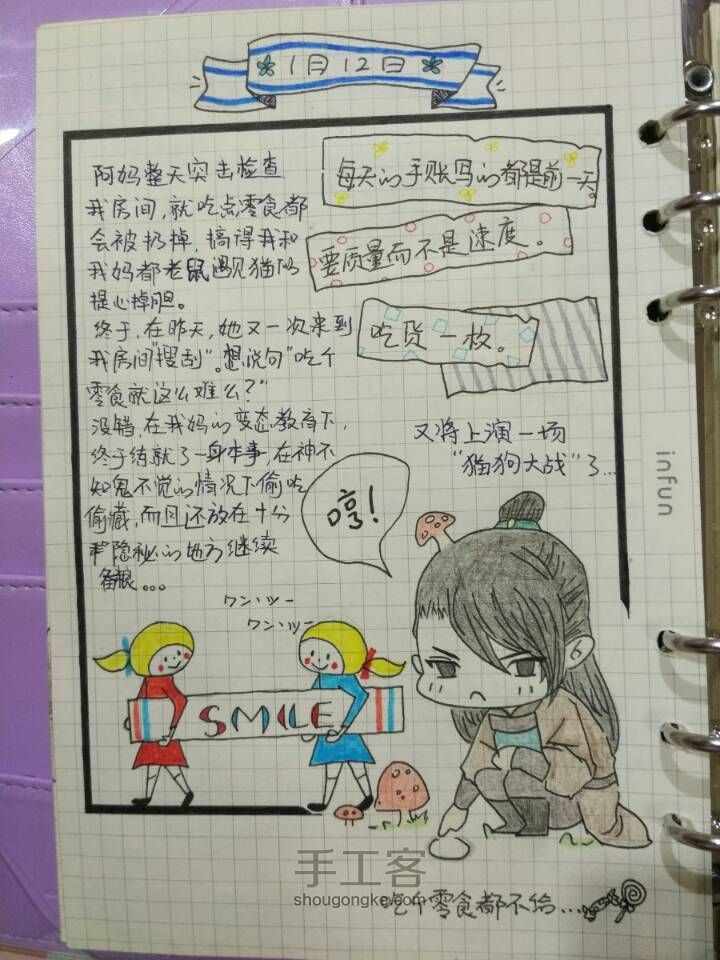 1月12日
阿妈整天突击检查
我房间,就吃点零食都
会被扔掉,搞得我和
我妈都老鼠遇见猫似
提心掉胆。
终于,在昨天,她又一次来到
我房间"搜刮"。想说句"吃个
零食就这么难么?"
没错,在我妈的变态教育下,
终于练就了一身本事,在神不
知鬼不觉的情况下偷吃
偷藏,而且还放在十分
隐秘的地方继续
备粮...
每天的手账写的都提前一天。
要质量而不是速度。
吃货一枚。
又将上演一场
"猫狗大战"了...
哼!
ワン、ツー
ワン、ツー
SMILE
infun
手工客
shougongke.com
吃个零食都不给...